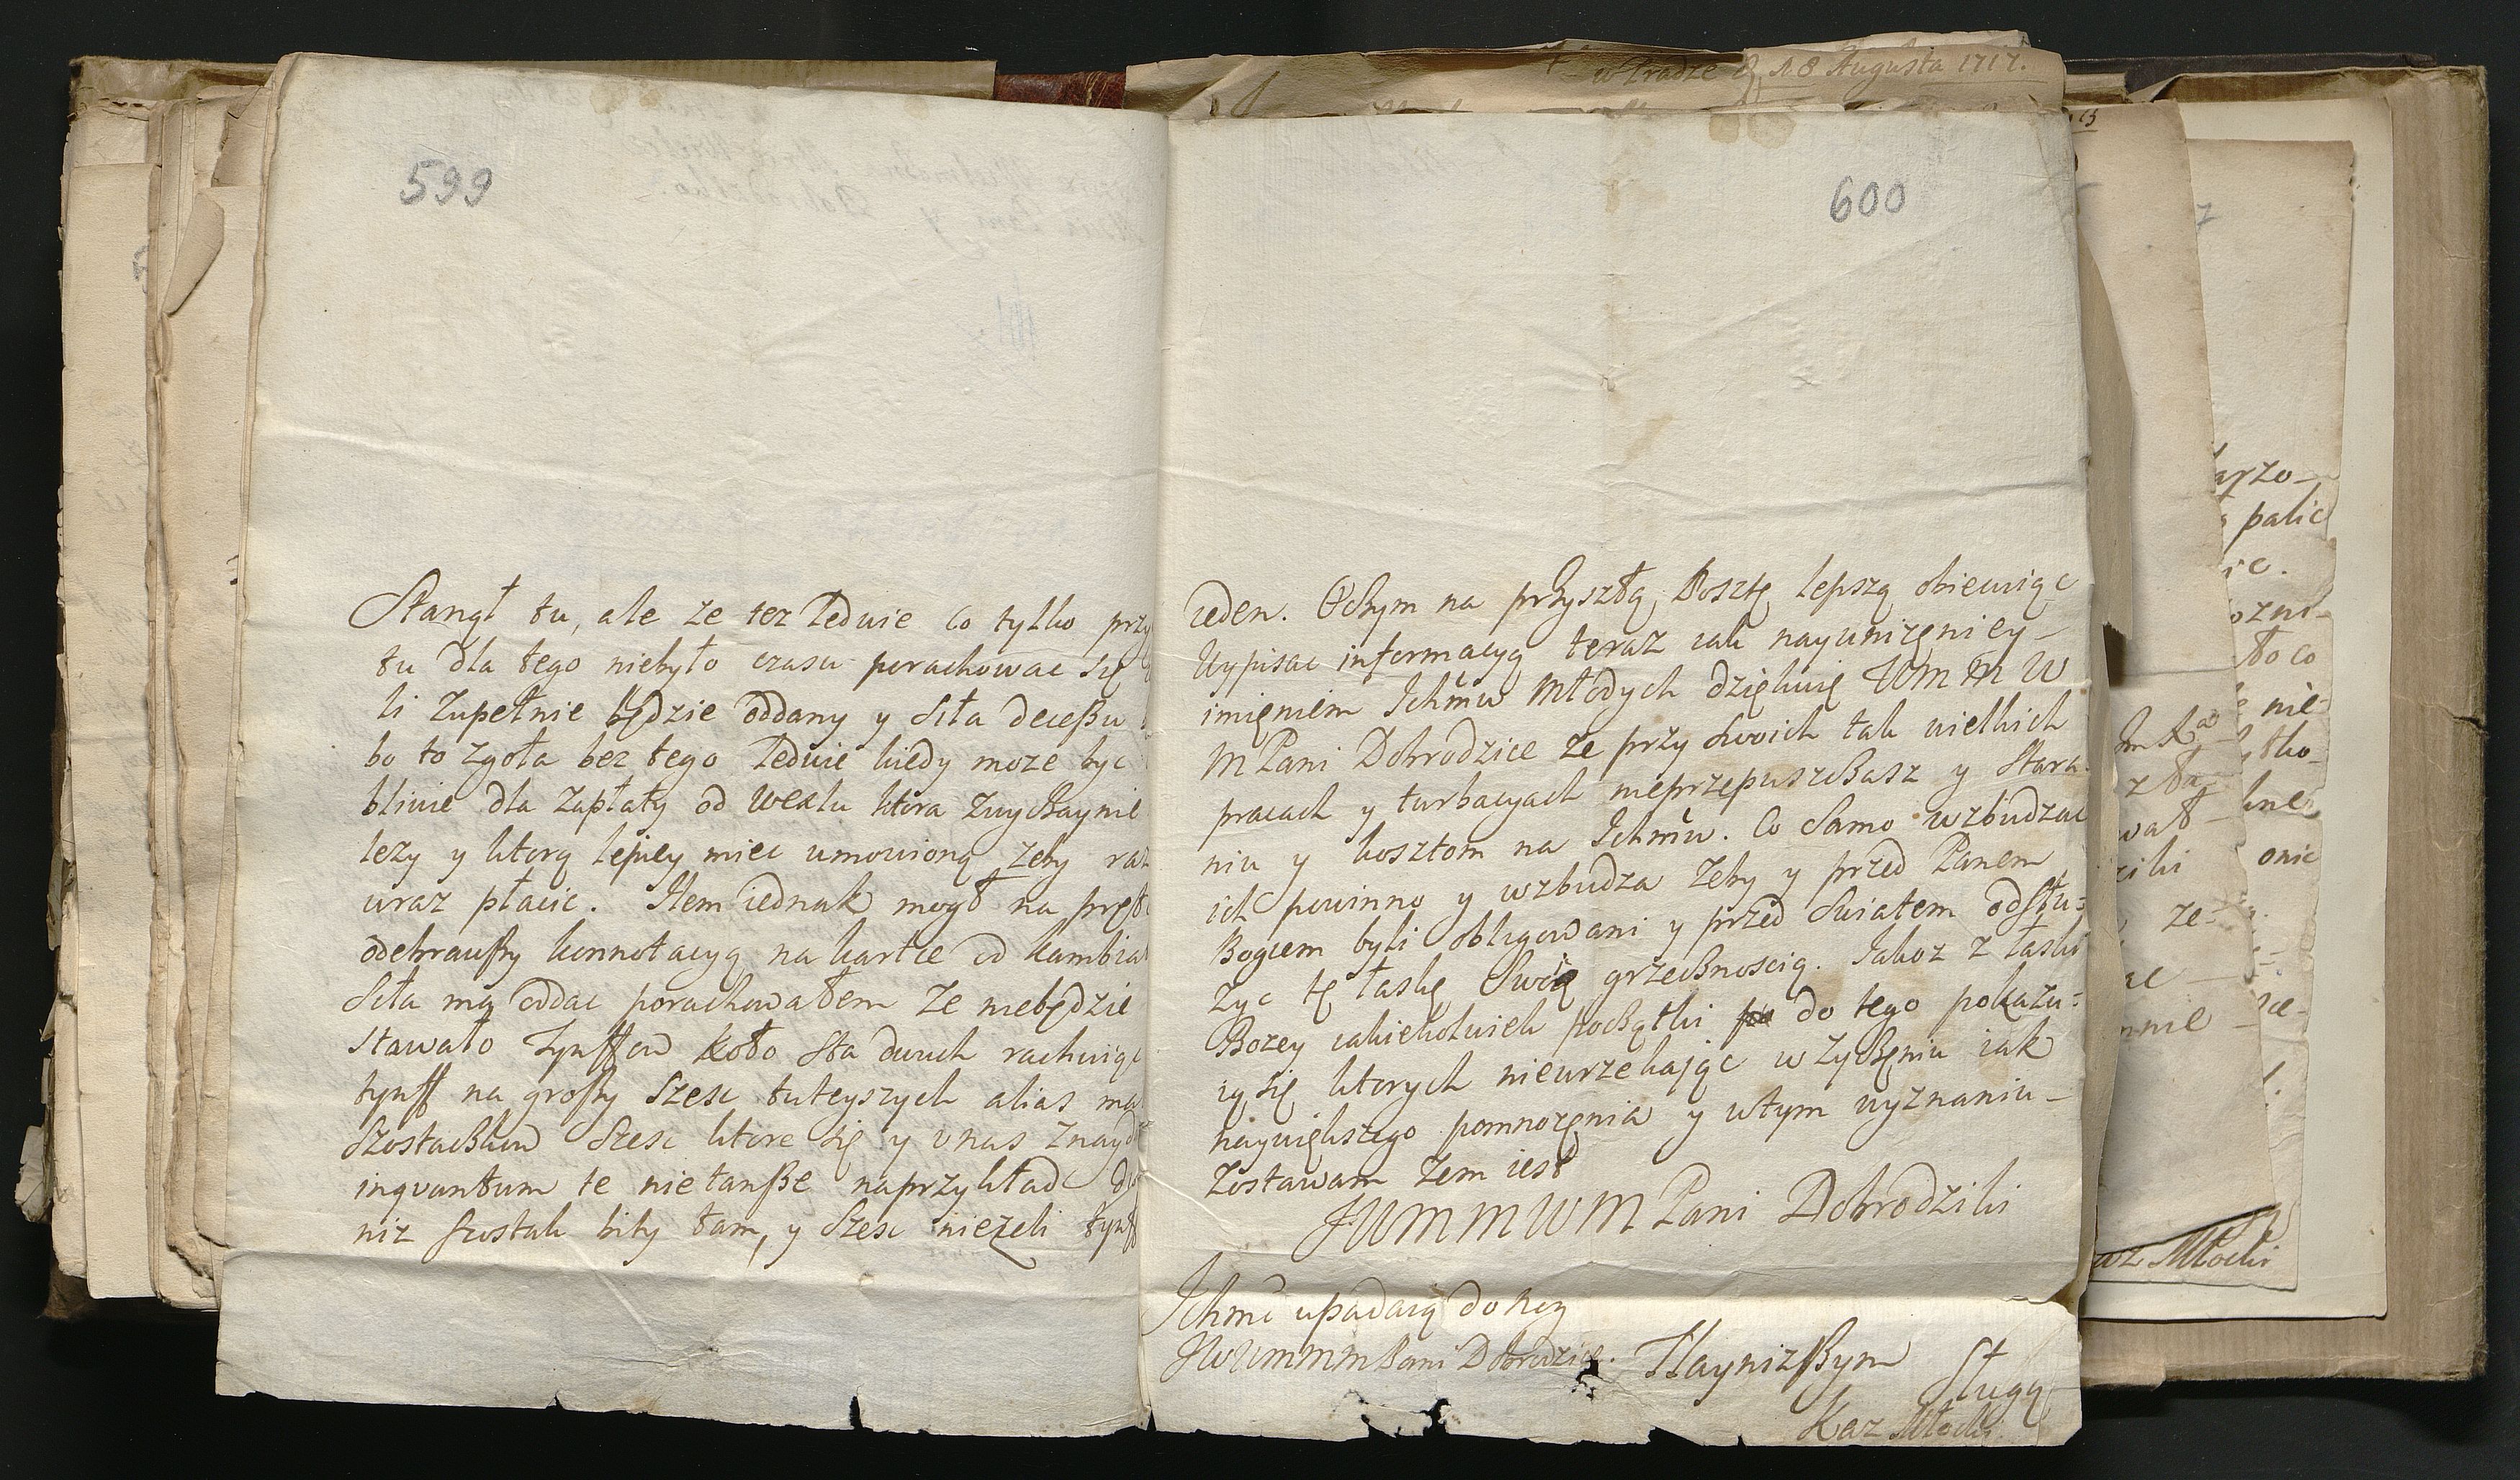 599
Stanął tu, ale ze tez ledwie co tylko
tu dla tego niebyło czasu porachowac się
li zupełnie będzie oddany y siła decessu
bo to zgoła bez tego ledwie kiedy moze byc
bliwie dla zapłaty od wexlu ktora zwyczaynie
lezy y ktorą lepiey miec umowioną zeby raz
uraz płacic. Ilem iednak mogł na
odebrawszy konnotacyą na kartce od
siła mą oddac porachowałem ze niebędzie
stawało tynffow koło sta dwuch rachuiąc
tynff na groszy szesc tuteyszych alias
szostaczkow szesc ktore się y u nas
inqvantum te nietansze naprzykład
niz szostak bity tam, y szesc niezeli tynff
600
ieden. O czym na przyszłą Posztę lepszą obiecuiąc
wypisac informacyą teraz iak nayunizęniey
imięniem Ichmw Młodych dziękuię WMMW
MPani Dobrodzice ze przy swoich tak wielkich
pracach y turbacyach nieprzepuszczasz y stara
niu y kosztom na Ichmw. Co samo wzbudzac
ich powinno y wzbudza zeby y przed Panem
Bogiem byli obligowani y przed swiatem odsłu=
zyc tę łaskę swoią grzecznoscią. Jakoz z łaski
Bozey iakiekolwiek początki do tego pokazu=
ią się ktorych nieurzekaiąc w zyczęniu iak
naywiększego pomnozęnia y wtym wyznaniu
zostawam zem iest
JWMMWMPani Dobrodziki
Ichmc upadaią do nog
JWWMMMPani Dobrodzice.
Nayniszszym Sługą
Kaz Młocki
w Pradze 18 Augusta 1717.
palic
nie=
onic
ze=
Młocki